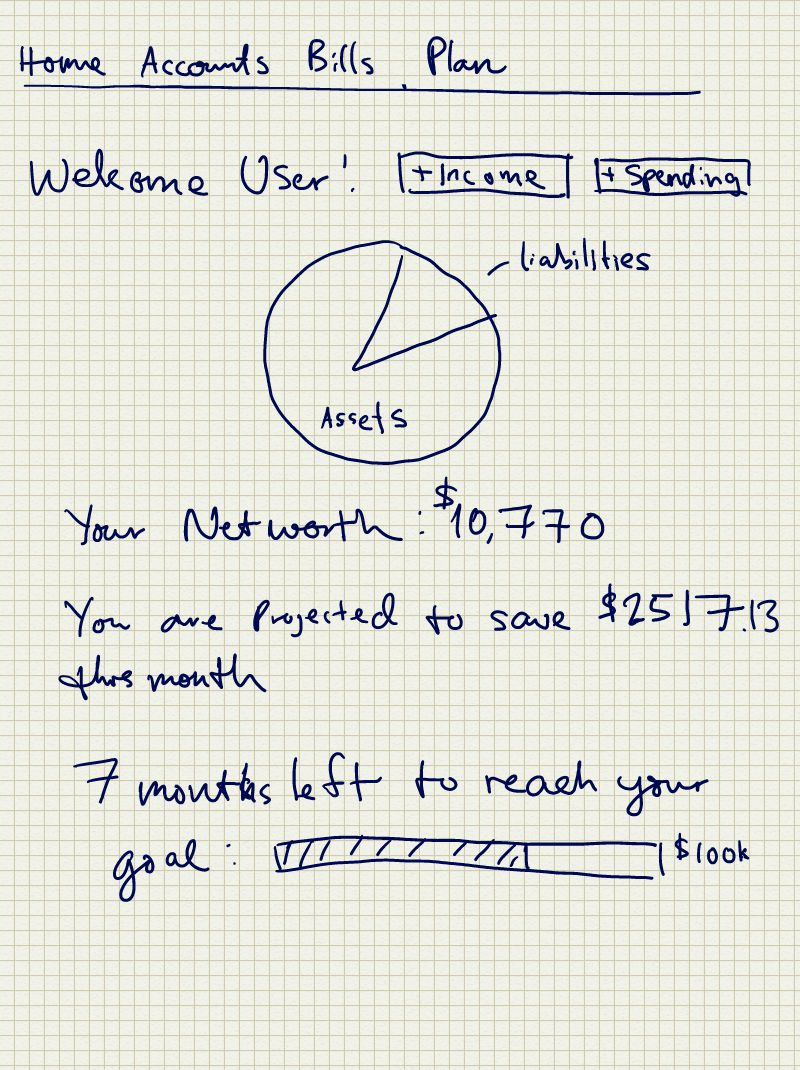 Home Accounts Bills Plan
Welcome User! +Income + Spending
liabilities
Assets
Your Networth: $10,770
You are Projected to save $2517.13
this month
7 months left to reach your
goal: $100k